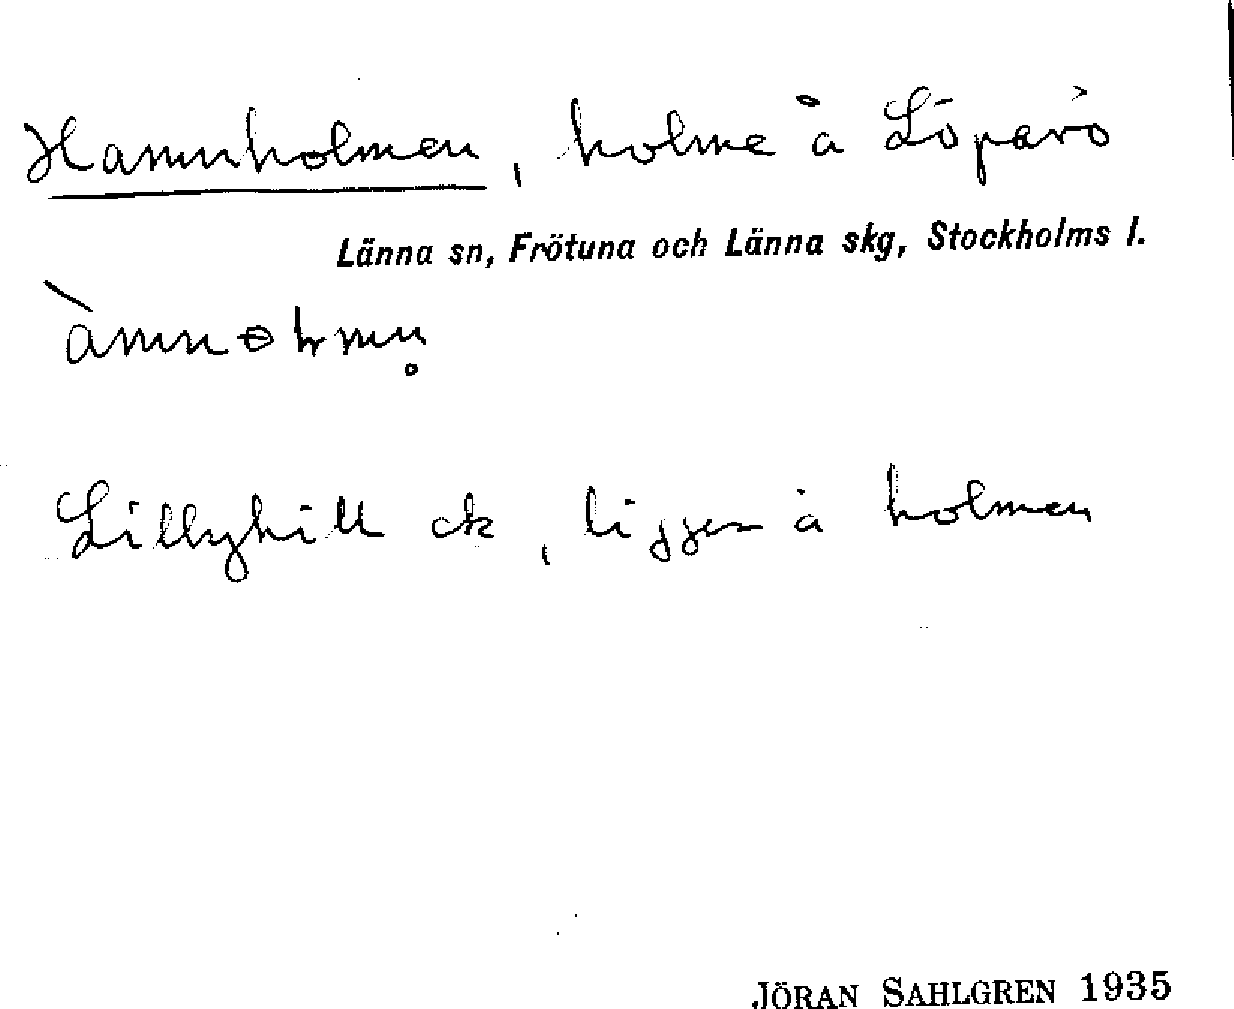 Hamnholmen, holme å Löparö
Länna sn, Frötuna och Länna skg, Stockholms l.
Lillyhill ck, ligger å holmen
JÖRAN SAHLGREN 1935